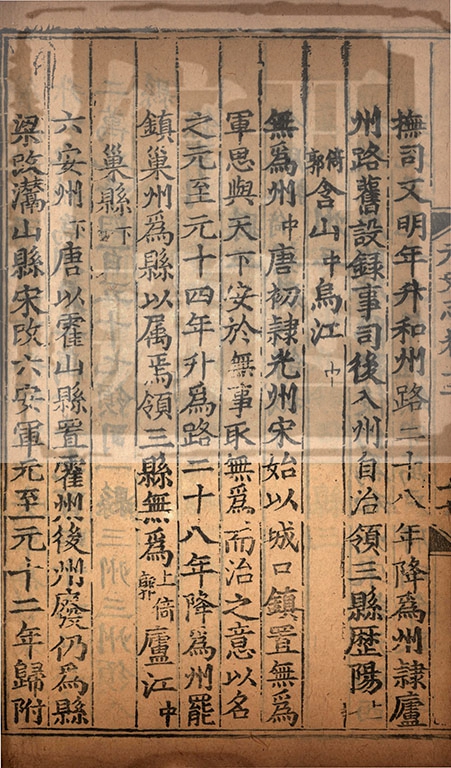 撫司又明年升和州路二十八年降爲州隸廬
州路舊設録事司後入州自治領三縣歷陽上
倚郭含山中烏江中
無爲州中唐初隸光州宋始以城口鎮置無爲
軍思與天下安於無事取無爲而治之意以名
之元至元十四年升爲路二十八年降爲州罷
鎮巢州爲縣以属焉領三縣無爲上倚郭廬江中
巢縣下
六安州下唐以霍山縣置霍州後州廢仍爲縣
梁改灊山縣宋改六安軍元至元十二年歸附